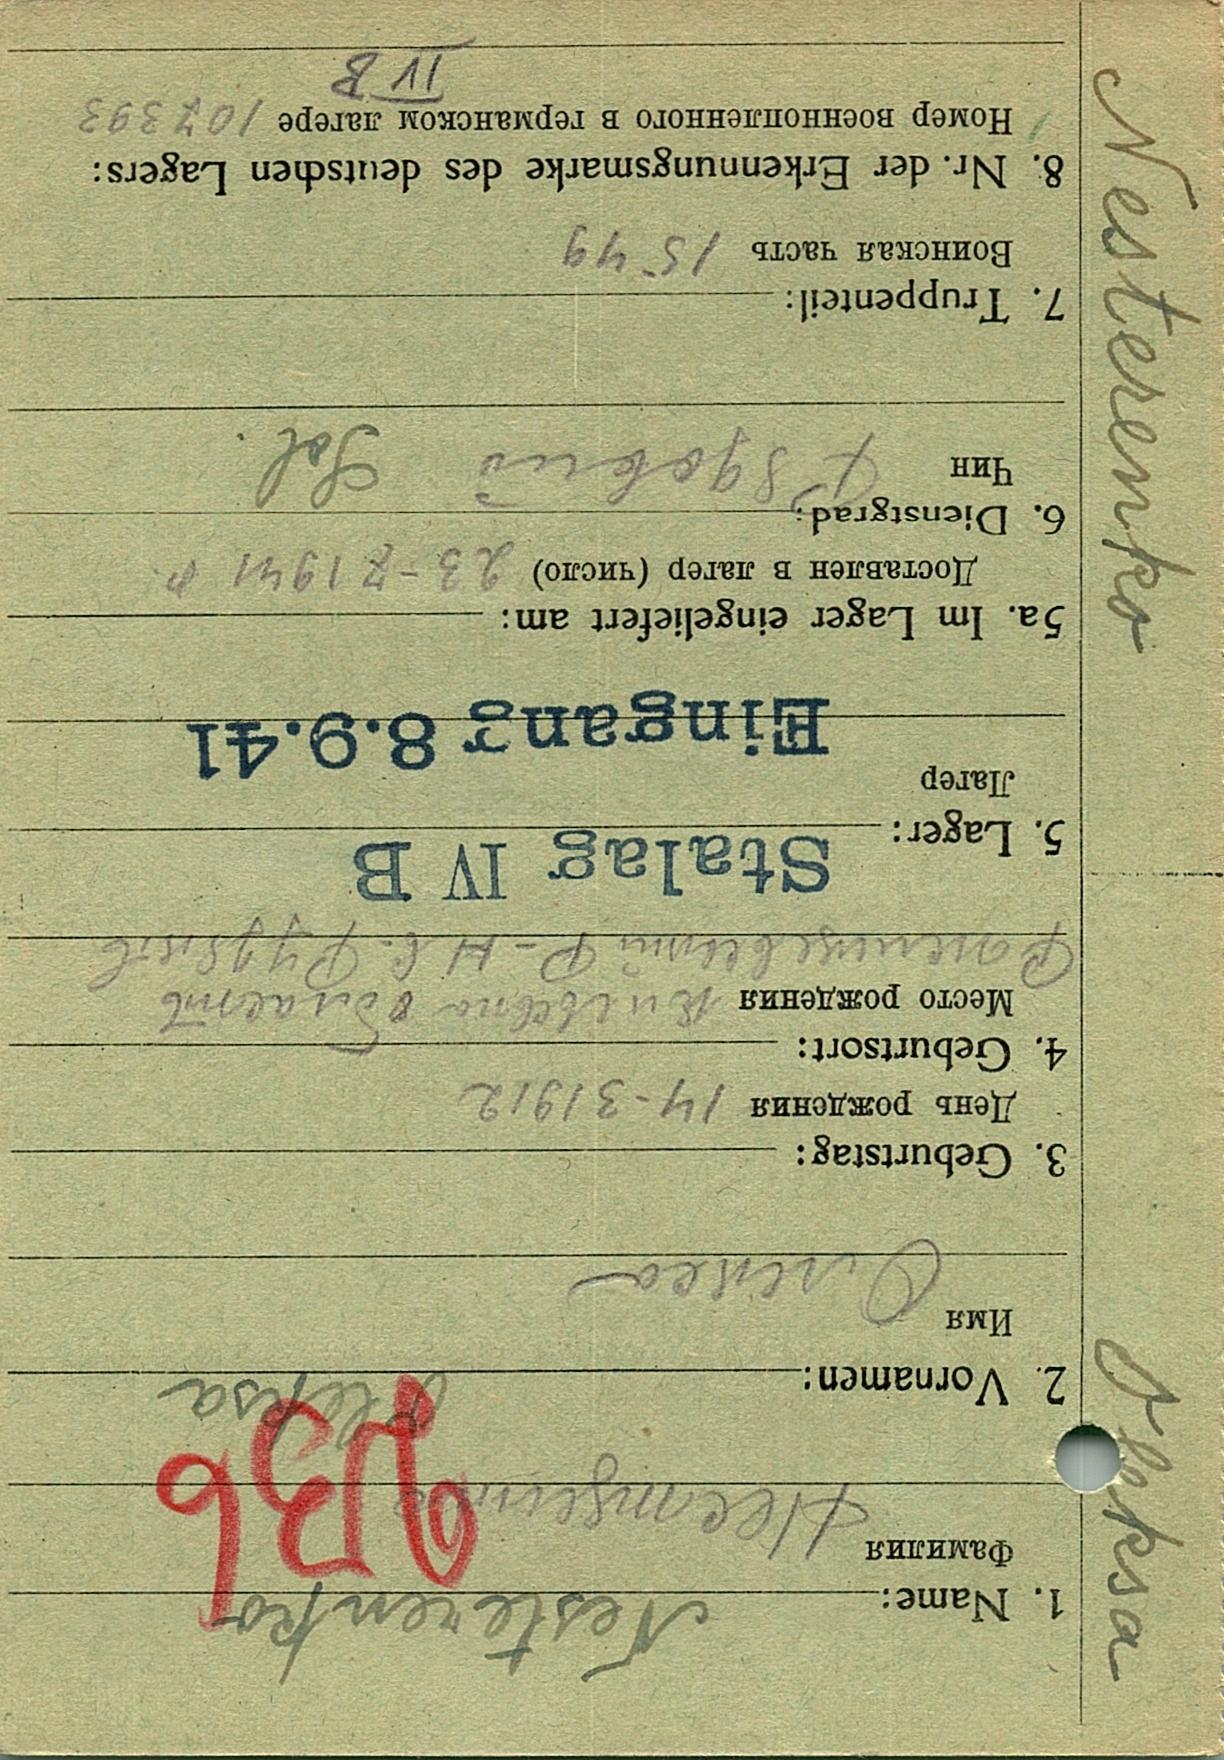 Nesterenko Oleksa
1. Name: Nesterenko
Фамилия
2. Vornamen: Oleksa
Имя Олекса
3. Geburtstag:
День рождения 14-3 1912
4. Geburtsort:
Место рождения область
Stalag IV B
5. Lager:
Лагер
Eingang 8.9.41
5a. Im Lager eingeliefert am:
Доставлен в лагер (число) 23-7 1941 р.
6. Dienstgrad:
Чин Рядовий Sol.
7. Truppenteil:
Воинская часть 1549
8. Nr. der Erkennungsmarke des deutschen Lagers:
Номер военнопленного в германском лагере 107393
IV B